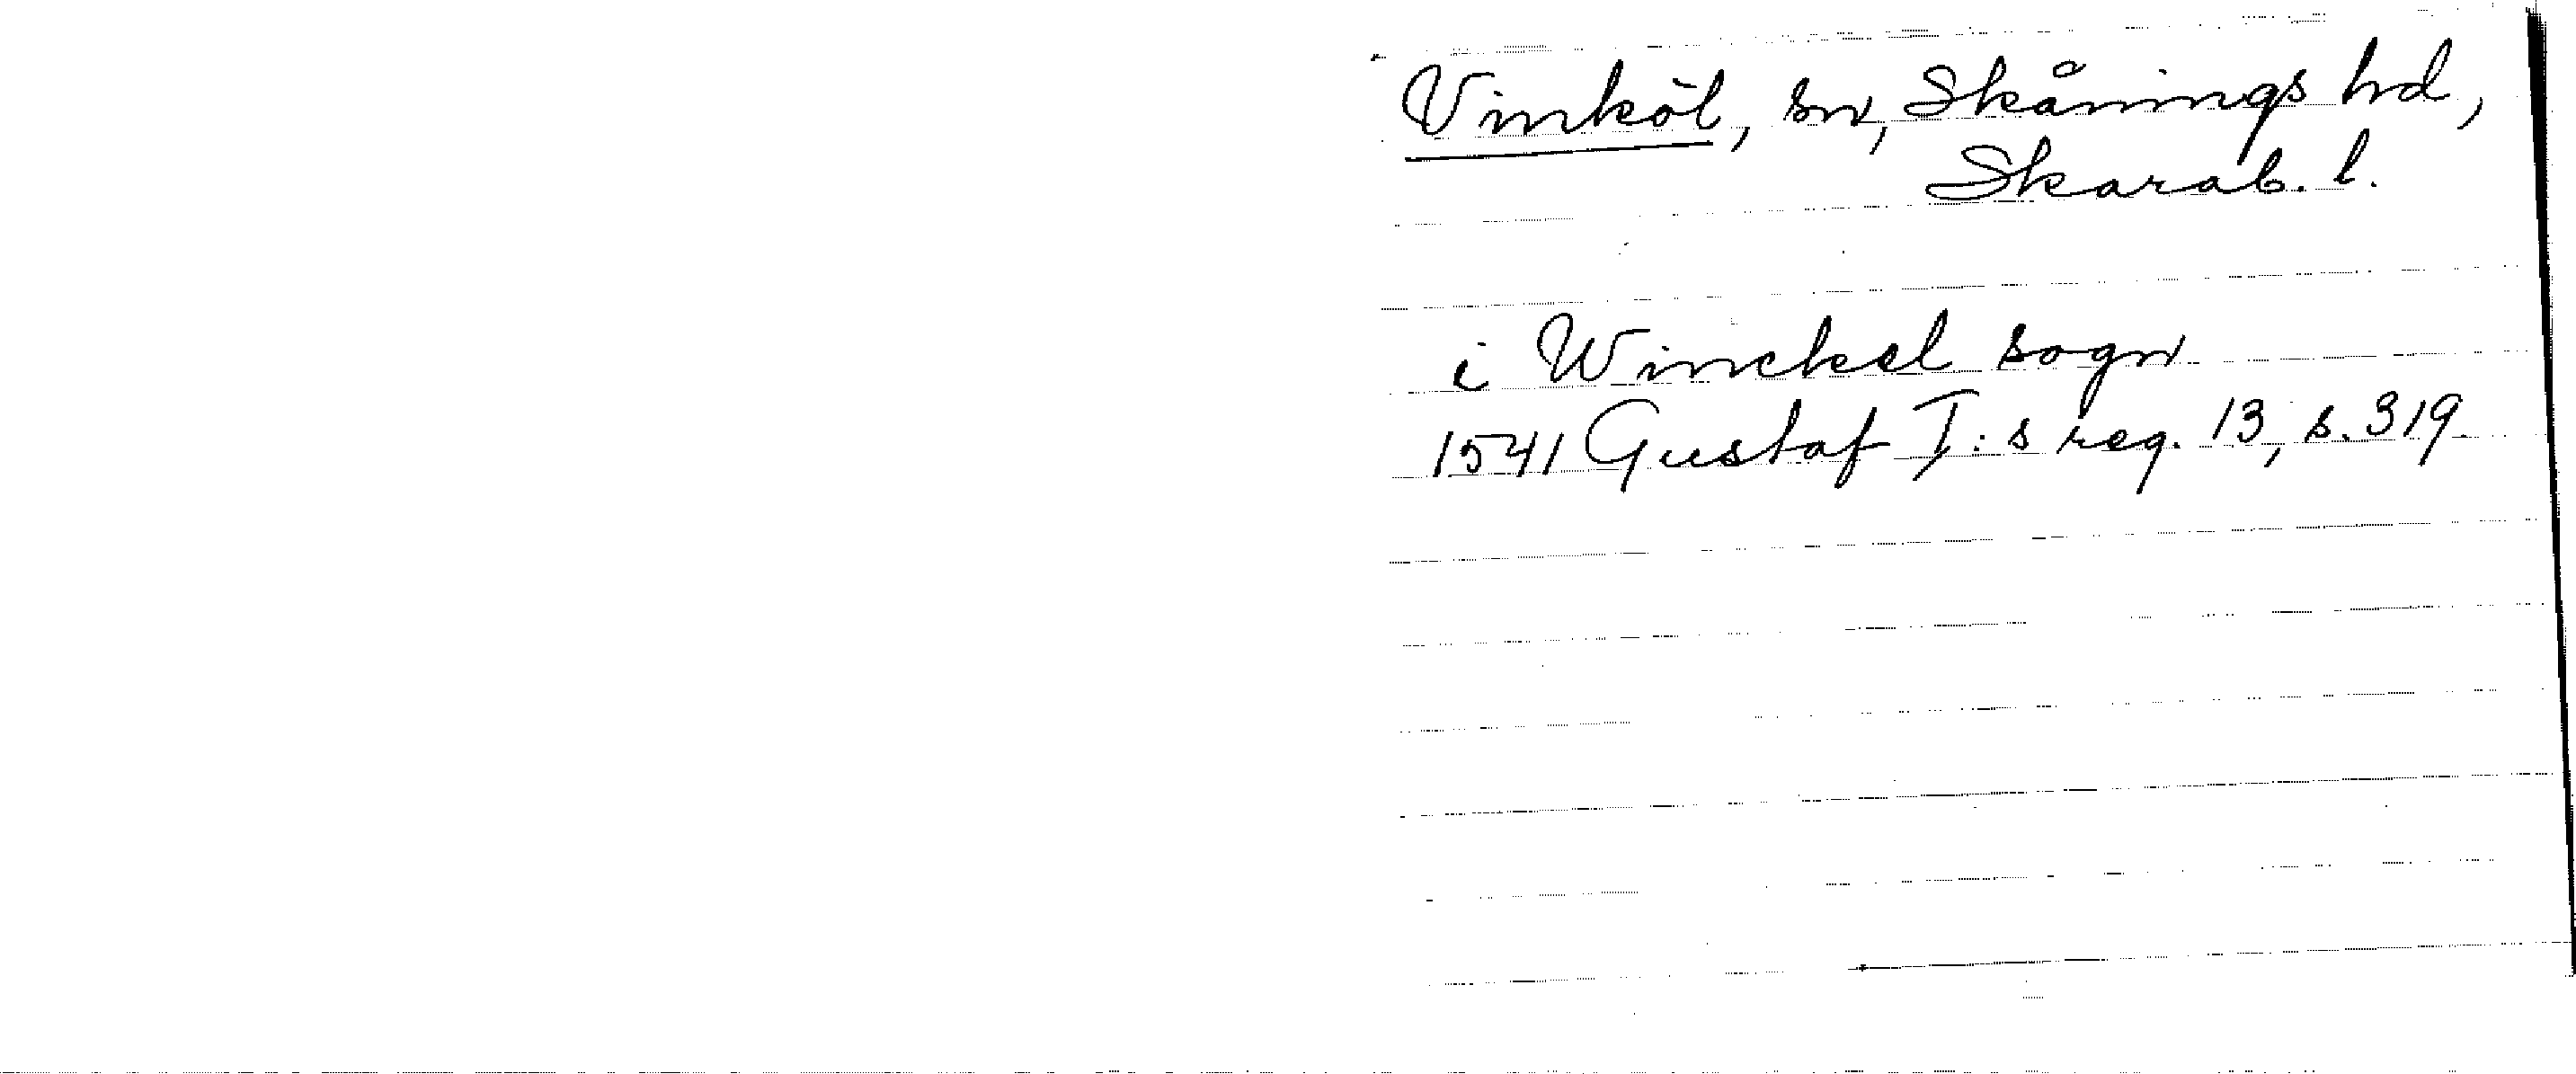 Vinköl, sn, Skånings hd,
Skarab. l.
i Winckel sogn
1541 Gustaf I:s reg. 13, s. 319.